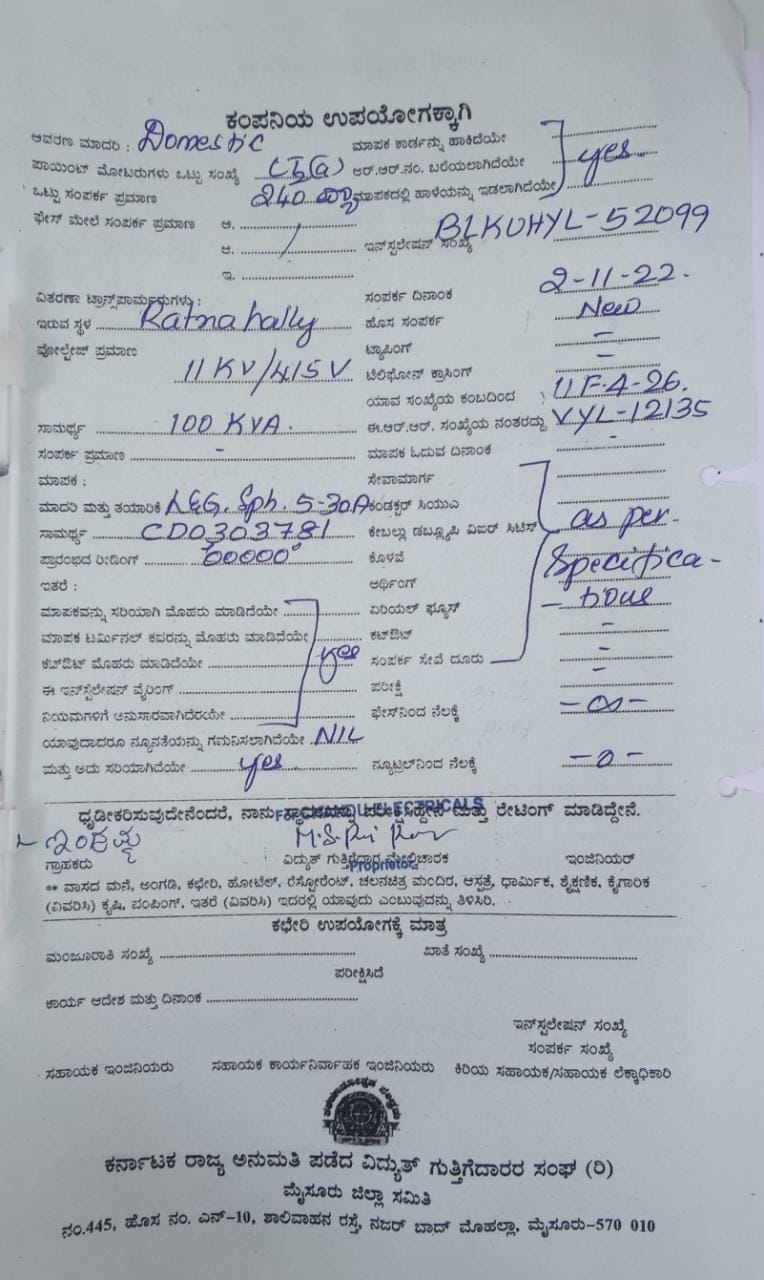 ಕಂಪನಿಯ ಉಪಯೋಗಕ್ಕಾಗಿ
ಆವರಣ ಮಾದರಿ : Domestic ಮಾಪಕ ಕಾರ್ಡನ್ನು ಹಾಕಿದೆಯೇ
ಪಾಯಿಂಟ್ ಮೋಟರುಗಳು ಒಟ್ಟು ಸಂಖ್ಯೆ ಆರ್.ಆರ್.ನಂ. ಬರೆಯಲಾಗಿದೆಯೇ yes.
ಒಟ್ಟು ಸಂಪರ್ಕ ಪ್ರಮಾಣ 240 ಮಾಪಕದಲ್ಲಿ ಹಾಳೆಯನ್ನು ಇಡಲಾಗಿದೆಯೇ
ಫೇಸ್ ಮೇಲೆ ಸಂಪರ್ಕ ಪ್ರಮಾಣ ಅ.
ಆ. ಇನ್‌ಸ್ಟಲೇಷನ್ ಸಂಖ್ಯೆ BLKUHYL-52099
ಇ.
ವಿತರಣಾ ಟ್ರಾನ್ಸ್‌ಪಾರ್ಮರುಗಳು : ಸಂಪರ್ಕ ದಿನಾಂಕ 2-11-22.
ಇರುವ ಸ್ಥಳ Ratnahally ಹೊಸ ಸಂಪರ್ಕ New
ವೋಲ್ಟೇಜ್ ಪ್ರಮಾಣ ಟ್ಯಾಪಿಂಗ್ -
11 KV/415 V ಟೆಲಿಫೋನ್ ಕ್ರಾಸಿಂಗ್ -
ಯಾವ ಸಂಖ್ಯೆಯ ಕಂಬದಿಂದ 11F-4-26.
ಸಾಮರ್ಥ್ಯ 100 KVA. ಈ.ಆರ್.ಆರ್. ಸಂಖ್ಯೆಯ ನಂತರದ್ದು VYL-12135
ಸಂಪರ್ಕ ಪ್ರಮಾಣ - ಮಾಪಕ ಓದುವ ದಿನಾಂಕ -
ಮಾಪಕ : ಸೇವಾಮಾರ್ಗ
ಮಾದರಿ ಮತ್ತು ತಯಾರಿಕೆ L&G. Sph. 5-30A ಕಂಡಕ್ಟರ್ ಸಿಯುಎ
ಸಾಮರ್ಥ್ಯ CD0303781 ಕೇಬಲ್ಲು ಡಬ್ಲ್ಯೂಪಿ ವಿಐರ್ ಸಿಟಿಸ್ as per-
ಪ್ರಾರಂಭದ ರೀಡಿಂಗ್ 00000° ಕೊಳವೆ Specifica-
ಇತರೆ : ಅರ್ಥಿಂಗ್
ಮಾಪಕವನ್ನು ಸರಿಯಾಗಿ ಮೊಹರು ಮಾಡಿದೆಯೇ ಏರಿಯಲ್ ಫ್ಯೂಸ್ - tions
ಮಾಪಕ ಟರ್ಮಿನಲ್ ಕವರನ್ನು ಮೊಹರು ಮಾಡಿದೆಯೇ ಕಟ್‌ಔಟ್ -
ಕಟ್‌ಔಟ್ ಮೊಹರು ಮಾಡಿದೆಯೇ yes ಸಂಪರ್ಕ ಸೇವೆ ದೂರು -
ಈ ಇನ್‌ಸ್ಟಲೇಷನ್ ವೈರಿಂಗ್ ಪರೀಕ್ಷೆ -
ನಿಯಮಗಳಿಗೆ ಅನುಸಾರವಾಗಿದೆರಯೇ ಫೇಸ್‌ನಿಂದ ನೆಲಕ್ಕೆ - ∞ -
ಯಾವುದಾದರೂ ನ್ಯೂನತೆಯನ್ನು ಗಮನಿಸಲಾಗಿದೆಯೇ NIL
ಮತ್ತು ಅದು ಸರಿಯಾಗಿದೆಯೇ yes ನ್ಯೂಟ್ರಲ್‌ನಿಂದ ನೆಲಕ್ಕೆ - 0 -
ಧೃಡೀಕರಿಸುವುದೇನೆಂದರೆ, ನಾನು ಮತ್ತು ರೇಟಿಂಗ್ ಮಾಡಿದ್ದೇನೆ.
ELECTRICALS
ಗ್ರಾಹಕರು ವಿದ್ಯುತ್ ಗುತ್ತಿಗೆದಾರ ಮೇಲ್ವಿಚಾರಕ ಇಂಜಿನಿಯರ್
Proprietor
** ವಾಸದ ಮನೆ, ಅಂಗಡಿ, ಕಛೇರಿ, ಹೋಟೆಲ್, ರೆಸ್ಟೋರೆಂಟ್, ಚಲನಚಿತ್ರ ಮಂದಿರ, ಆಸ್ಪತ್ರೆ, ಧಾರ್ಮಿಕ, ಶೈಕ್ಷಣಿಕ, ಕೈಗಾರಿಕ
(ವಿವರಿಸಿ) ಕೃಷಿ, ಪಂಪಿಂಗ್, ಇತರೆ (ವಿವರಿಸಿ) ಇದರಲ್ಲಿ ಯಾವುದು ಎಂಬುವುದನ್ನು ತಿಳಿಸಿರಿ.
ಕಛೇರಿ ಉಪಯೋಗಕ್ಕೆ ಮಾತ್ರ
ಮಂಜೂರಾತಿ ಸಂಖ್ಯೆ ಖಾತೆ ಸಂಖ್ಯೆ
ಪರೀಕ್ಷಿಸಿದೆ
ಕಾರ್ಯ ಆದೇಶ ಮತ್ತು ದಿನಾಂಕ
ಇನ್‌ಸ್ಟಲೇಷನ್ ಸಂಖ್ಯೆ
ಸಂಪರ್ಕ ಸಂಖ್ಯೆ
ಸಹಾಯಕ ಇಂಜಿನಿಯರು ಸಹಾಯಕ ಕಾರ್ಯನಿರ್ವಾಹಕ ಇಂಜಿನಿಯರು ಕಿರಿಯ ಸಹಾಯಕ/ಸಹಾಯಕ ಲೆಕ್ಕಾಧಿಕಾರಿ
ಕರ್ನಾಟಕ ರಾಜ್ಯ ಅನುಮತಿ ಪಡೆದ ವಿದ್ಯುತ್ ಗುತ್ತಿಗೆದಾರರ ಸಂಘ (ರಿ)
ಮೈಸೂರು ಜಿಲ್ಲಾ ಸಮಿತಿ
ನಂ.445, ಹೊಸ ನಂ. ಎನ್-10, ಶಾಲಿವಾಹನ ರಸ್ತೆ, ನಜರ್ ಬಾದ್ ಮೊಹಲ್ಲಾ, ಮೈಸೂರು-570 010